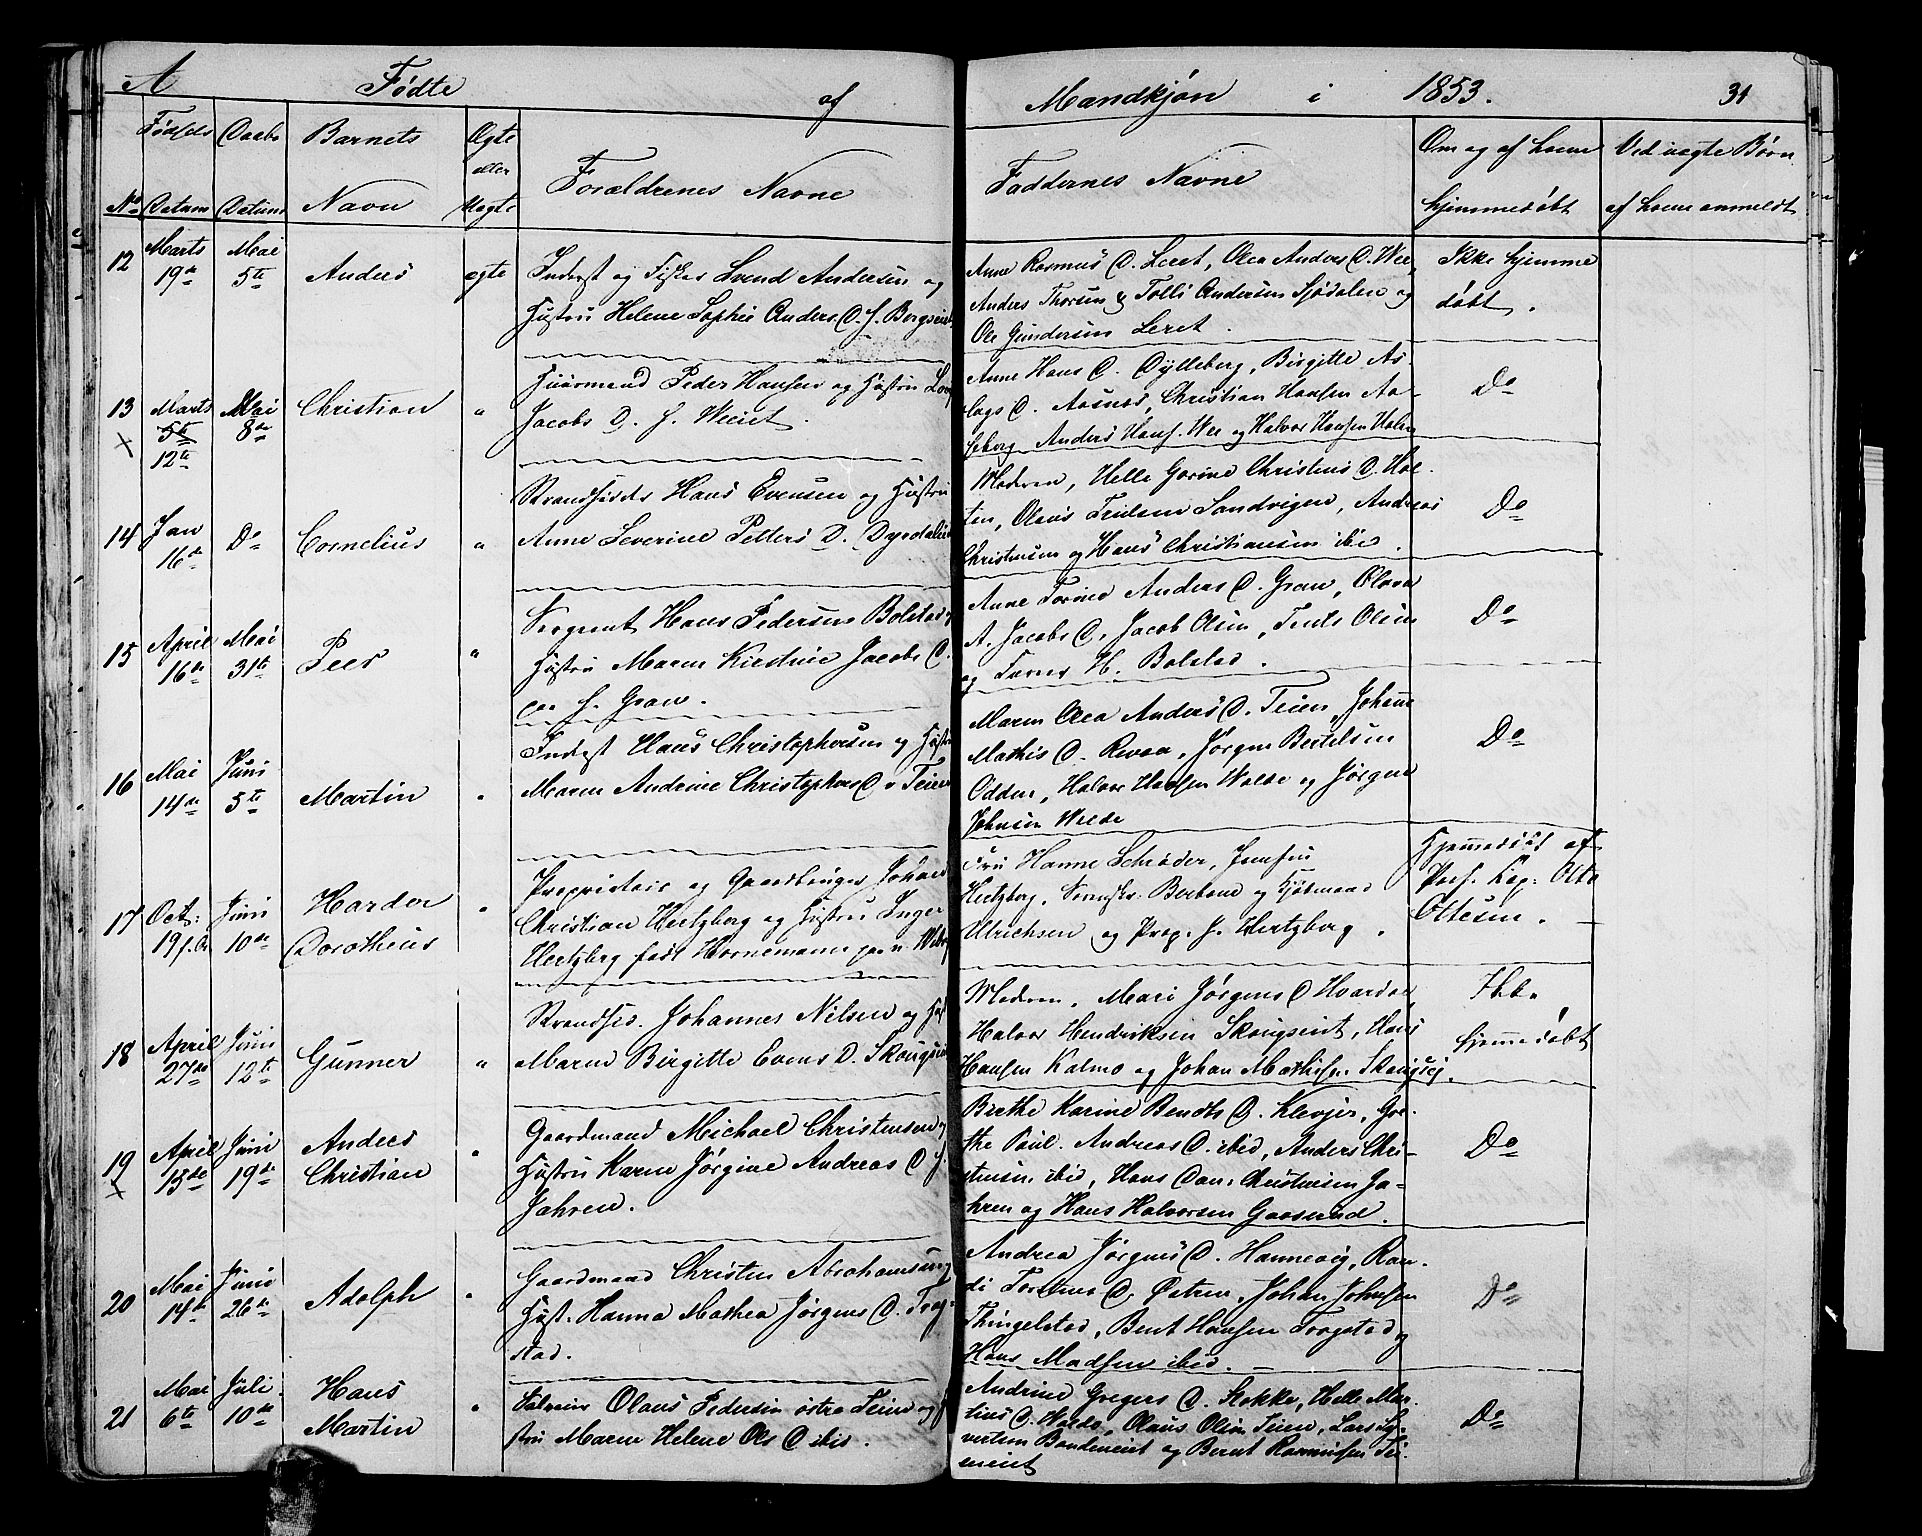 A Fødte af Mandkjøn i 1853. 31
Fødsels Daabs Barnets Ægte Forældrenes Navne Faddernes Navne Om og af hvem Ved uægte Børn
eller
No Datum Datum Navn Uægte hjemmedøbt af hvem anmeldt
12 Marts 19de Mai 5te Anders ægte
Inderst og Fisker Svend Andersen og
Hustru Helene Sophie Anders D. f. Bergseiet
Anne Rasmus D. Leret, Olea Anders D. Wee,
Anders Thorsen & Tolli Andersen Sjødalen og
Ole Gundersen Leret.
Ikke hjemme
døbt.
13 Marts 5te 12te Mai 8de Christian "
Huusmand Peder Hansen og Hustru
Jacobs D. f. Weeiet.
Anne Hans D. Dylleberg, Birgitte As-
lags D. Aasnes, Christian Hansen Aa-
seberg Anders Hans. Wee og Halvor Hansen Holm
Do
14 Jan 16de Do Cornelius "
Strandsidder Hans Evensen og Hustru
Anne Severine Petters D. Dyrdalen
Moderen, Helle Gorine Christens D. Hol-
ten, Olaus Truls​en Sandvigen, Andreas
Christensen og Hans Christiansen ibid.
Do
15 April 16de Mai 31te Peer "
Sergeant Hans Pedersen Bolstad og
Hustru Maren Kirstine Jacobs D.
paa f. Gran.
Anne Torine Anders D. Gran, Olava
A. Jacobs D. Jacob Olsen, Truls Olsen
og H. Bolstad.
Do
16 Mai 14de Juni 5te Martin "
Inderst Claus Christophersen og Hustru
Maren Andrine Christophers D. v Teien
Maren Olea Anders D. Teien, Johanne
Mathis D. Revaa, Jørgen Bertelsen
Odden, Halvor Hansen Walde og Jørgen
Johnsen Welde
Do
17 Oct: 19 f. A. Juni 10de Harder Dorotheus "
Proprietair og Gaardbruger Johan
Christian Hertzberg og Hustru Inger
Hertzberg født Hornemann paa n.
Fru Hanne Schrøder, Jomfru
Hertzberg, Berband og Kjøbmand
Ulrichsen og Prop. J. Hertzberg.
Hjemmedøbt af
Pers. Kap: Otto
Ottesen.
18 April 27de Juni 12te Gunner "
Strandsid. Johannes Nilsen og Hust
Maren Birgitte Evens D. Skougseiet
Modren, Mari Jørgens D. Hvardal
Halvor Hendriksen Skougseiet, Hans
Hansen Kalmo og Johan Mathisen Skougsej.
Ikke
hjemmedøbt
19 April 15de Juni 19de Anders Christian "
Gaardmand Michael Christensen og
Hustru Karen Jørgine Andreas D. f.
Jahren.
Birthe Karine Bendts D. Klevjer, Gre-
the Paul. Andreas D. ibid, Anders Chri-
stensen ibid, Hans Dan. Christensen Ja-
hren og Hans Halvorsen Gaaserud.
Do
20 Mai 14de Juni 26de Adolph "
Gaardmand Christen Abrahamsen og
Hust. Hanna Mathea Jørgens D. Frog-
stad.
Andrea Jørgens D. Hannevig, Ran-
di Torstens D. Østren, Johan Johnsen
Thingelstad, Bent Hansen Frogstad og
Hans Madsen ibid.
Do
21 Mai 6te Juli 10de Hans Martin "
Selveier Olaus Pedersen østre Teien og Hu
stru Maren Helene Ols D. ibid.
Andrine Gregers D. Stokke, Helle Mar-
tins D. Walde, Olaus Olsen Teien, Lars Sy-
vertsen Bondeneiet og Bernt Rasmussen Tei-
eneiet
Do